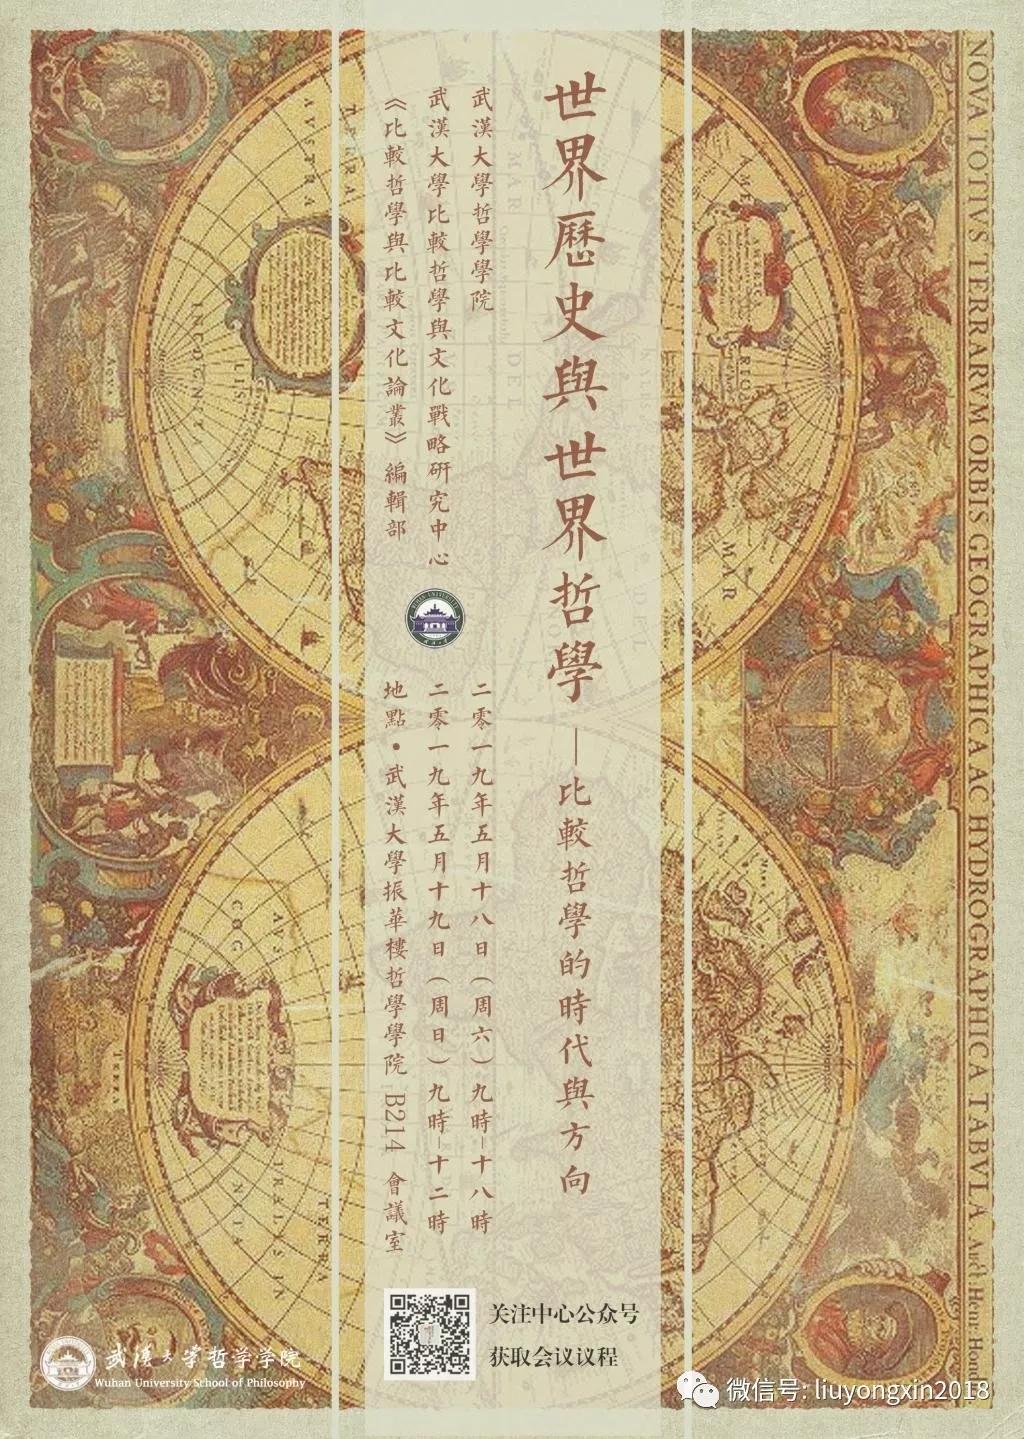 世界歷史與世界哲學
—比較哲學的時代與方向
武漢大學哲學學院
武漢大學比較哲學與文化戰略研究中心
《比較哲學與比較文化論叢》編輯部
二零一九年五月十八日(周六)九時-十八時
二零一九年五月十九日(周日)九時-十二時
地點·武漢大學振華樓哲學學院 B214 會議室
关注中心公众号
获取会议议程
武漢大学哲学学院
Wuhan University School of Philosophy
微信号: liuyongxin2018
NOVA TOTIVS TERRARVM ORBIS GEOGRAPHICA AC HYDROGRAPHICA TABVLA
MAR